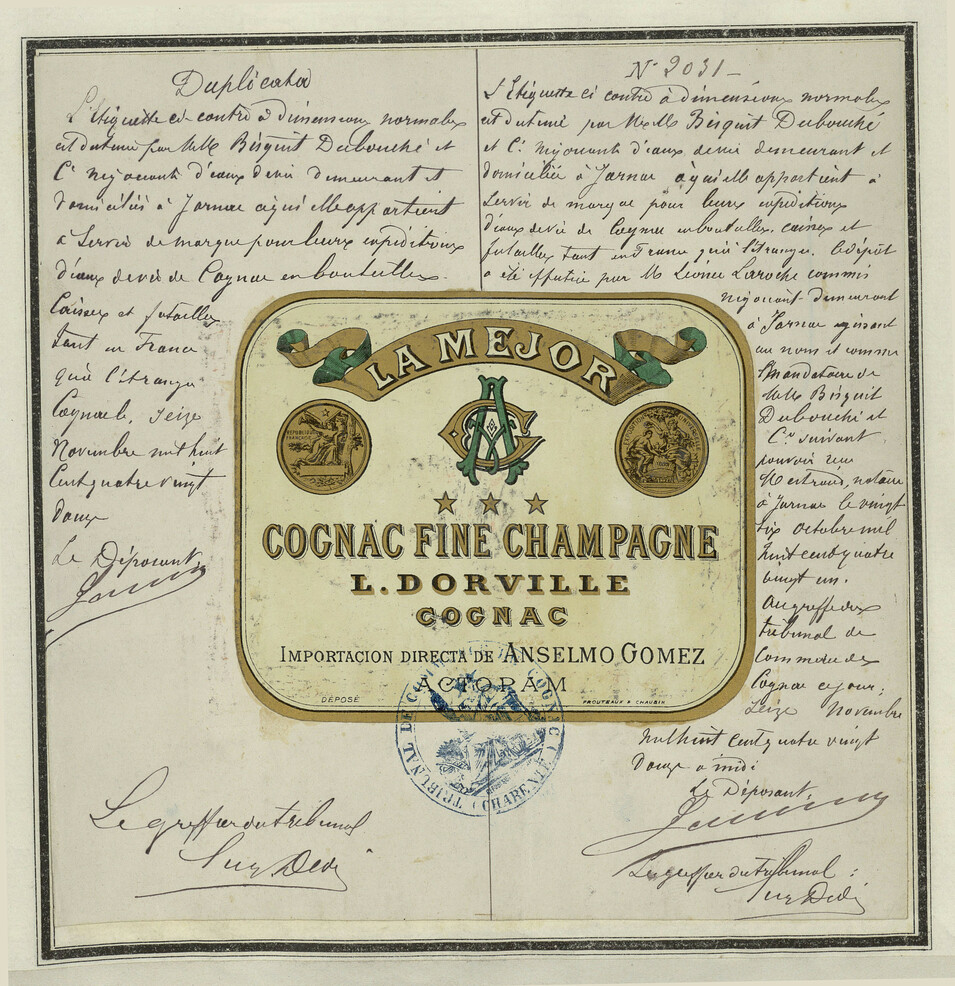 Duplicata
L'Etiquette ci-contre à dimensions normales
est détenue par MM. Bisquit Dubouché et
Cie négociants d'eaux de vie demeurant et
domiciliés à Jarnac à qui elle appartient
à servir de marque pour leurs expéditions
d'eaux de vie de Cognac en bouteilles
Caisses et futailles
tant en France
qu'à l'étranger
Cognac le, seize
Novembre mil huit
Cent quatre vingt
douze
Le Déposant,
Le greffier du tribunal
No 2031-
L'Etiquette ci contre à dimensions normales
est détenue par MM Bisquit Dubouché
et Cie négociants d'eaux de vie demeurant et
domiciliés à Jarnac à qui elle appartient à
servir de marque pour leurs expéditions
d'eaux de vie de Cognac en bouteilles, caisses et
futailles tant en France qu'à l'étranger. Ce dépôt
a été effectué par M. Léonce Laroche commis
négociant demeurant
à Jarnac agissant
au nom et comme
Mandataire de
MM Bisquit
Dubouché et
Cie suivant
pouvoir reçu
Mertraud, notaire
à Jarnac le vingt
six octobre mil
huit cent quatre
vingt un.
Au greffe du
tribunal de
Commerce de
Cognac ce jour,
Seize Novembre
mil huit cent quatre vingt
Douze à midi
Le Déposant,
Le greffier du tribunal :
LA MEJOR
REPUBLIQUE FRANÇAISE
COGNAC FINE CHAMPAGNE
L. DORVILLE
COGNAC
IMPORTACION DIRECTA DE ANSELMO GOMEZ
ACTOPAM
DÉPOSÉ
PROUTEAUX & CHAUBIN
TRIBUNAL DE COMMERCE DE COGNAC (CHARENTE)